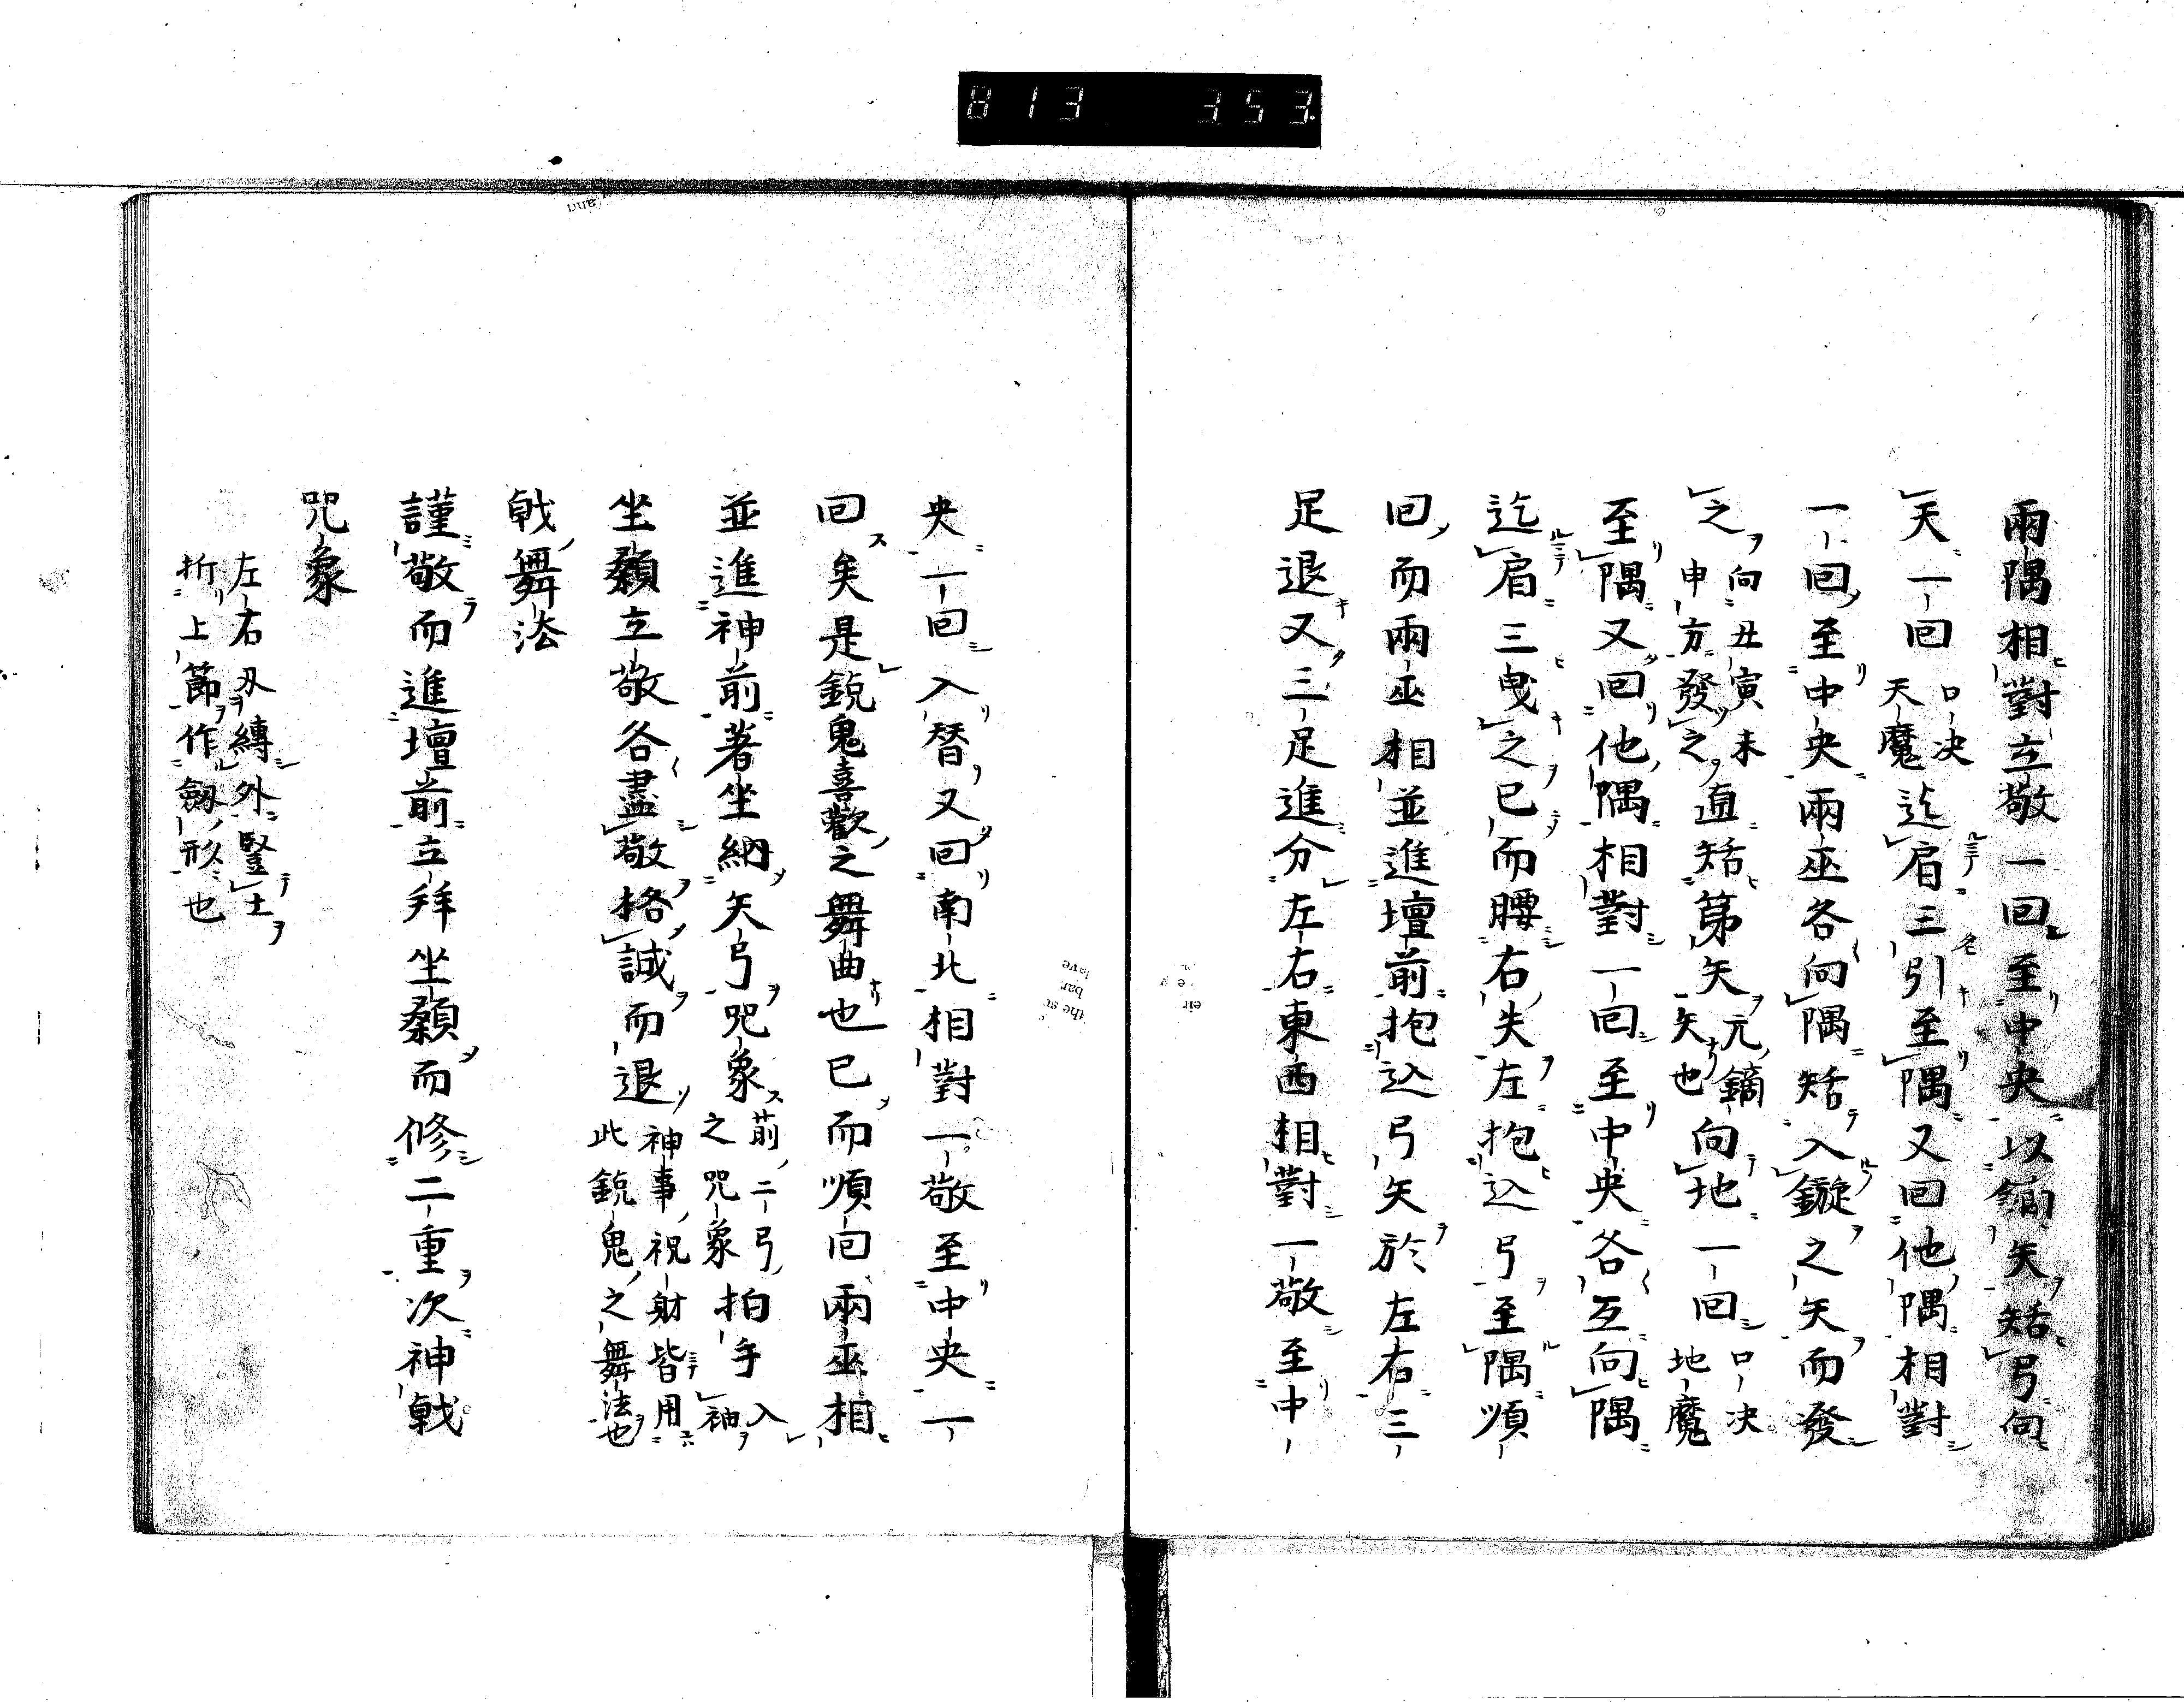 813 353
兩隅相對立敬一回至中央以鏑矢矯弓向
天一回口决天魔迄肩三引至隅又回他隅相對
一回至中央兩巫各向隅矯入鏇之矢而發
之向丑寅未申方發之直矯第矢元鏑矢也向地一回口决地魔
至隅又回他隅相對一回至中央各互向隅
迄肩三曳之已而腰右矢左抱込弓至隅順
回而兩巫相並進壇前抱込弓矢於左右三
足退又三足進分左右東西相對一敬至中
央一回入替又回南北相對一敬至中央一
回矣是鋭鬼喜歡之舞曲也已而順回兩巫相
並進神前著坐納矢弓咒象前二弓之咒象拍手入袖
坐顙立敬各盡敬格誠而退神事祝射皆用此鋭鬼之舞法也
戟舞法
謹敬而進壇前立拜坐顙而修二重次神戟
咒象
左右刄縛外豎士
折上節作劔形也